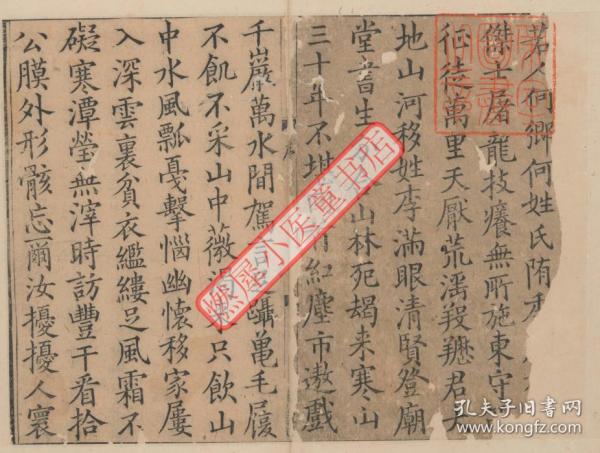 若人何鄉何姓氏隋
傑士屠龍技癢無所施東守
征徒萬里天厭荒滛羖䍽君
地山河移姓李滿眼清賢登廟
堂書生 山林死朅来寒山
三十年不堪 紅塵市遨戲
千巖萬水間駕 躡龜毛屨
不飢不采山中薇 只飲山
中水風瓢戞擊惱幽懷移家屢
入深雲裏貧衣繿縷足風霜不
礙寒潭瑩無滓時訪豐干看拾
公膜外形骸忘爾汝擾擾人寰
懶犀小医童书店
孔夫子旧书网
www.kongfz.com